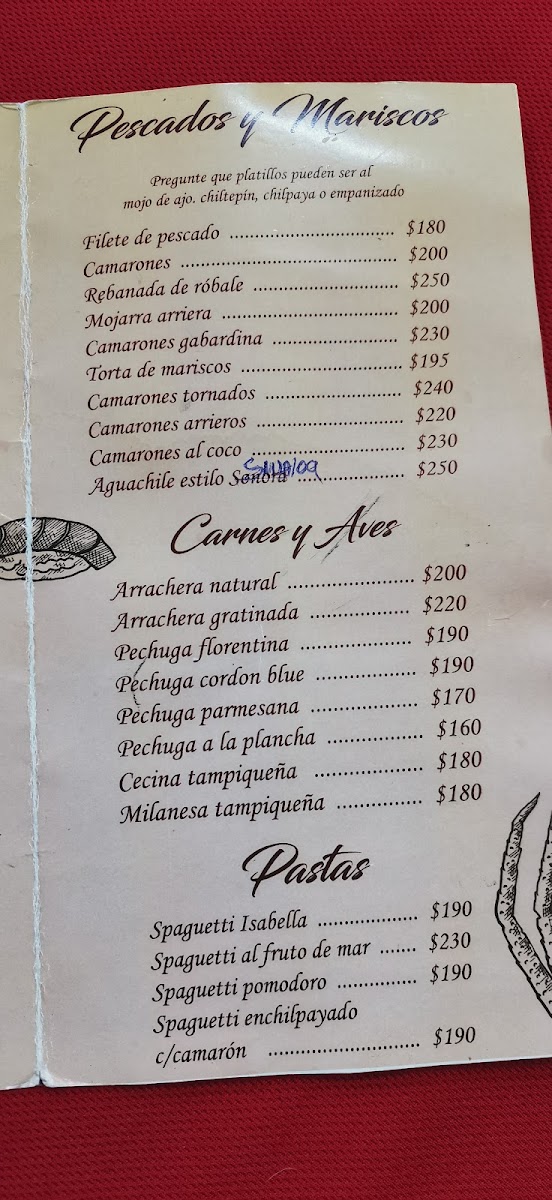 Pescados y Mariscos
Pregunte que platillos pueden ser al
mojo de ajo. chiltepín, chilpaya o empanizado
Filete de pescado ................................. $180
Camarones ........................................... $200
Rebanada de róbale ............................. $250
Mojarra arriera ................................... $200
Camarones gabardina ......................... $230
Torta de mariscos ................................ $195
Camarones tornados ........................... $240
Camarones arrieros ............................. $220
Camarones al coco ............................... $230
Sinaloa
Aguachile estilo Sonora ..................... $250
Carnes y Aves
Arrachera natural ...................... $200
Arrachera gratinada ................. $220
Pechuga florentina ................... $190
Pechuga cordon blue ................. $190
Pechuga parmesana .................. $170
Pechuga a la plancha ................ $160
Cecina tampiqueña .................. $180
Milanesa tampiqueña .............. $180
Pastas
Spaguetti Isabella .................. $190
Spaguetti al fruto de mar ....... $230
Spaguetti pomodoro ............... $190
Spaguetti enchilpayado
c/camarón ............................ $190